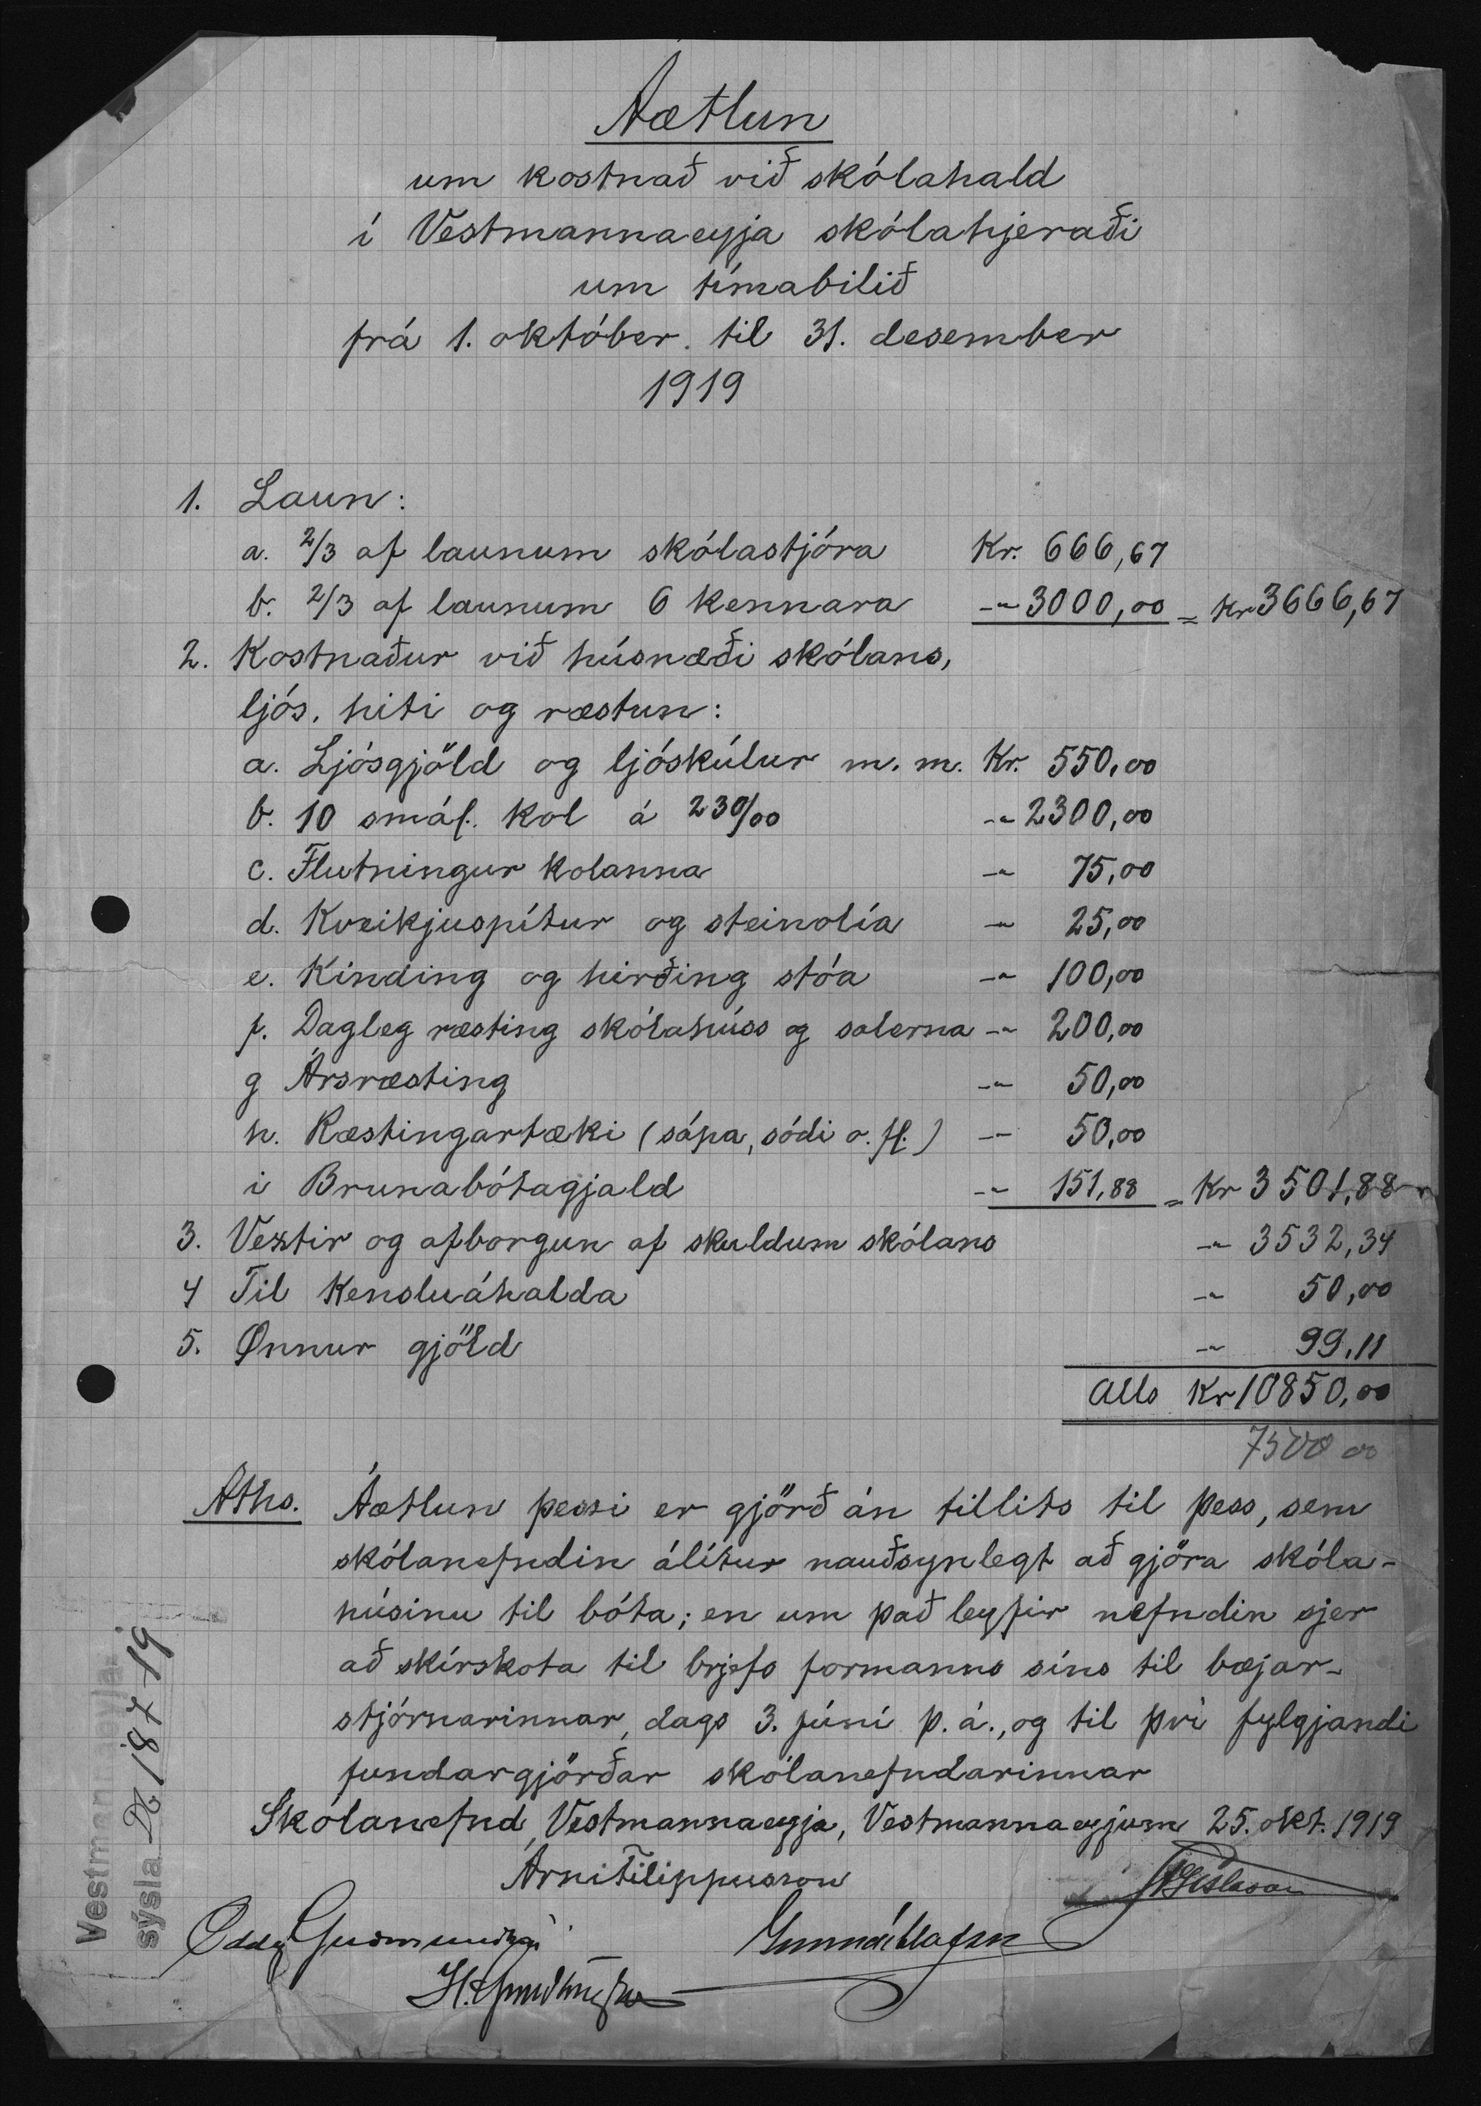 Áætlun
um kostnað við skólahald
í Vestmannaeyja skólahjeraði
um tímabilið
frá 1. október. til 31. desember
1919
1. Laun:
a. 2/3 af launum skólastjóra Kr. 666,67
b. 2/3 af launum 6 kennara -"- 3000,00 = Kr 3666,67
2. Kostnaður við húsnæði skólans,
ljós, hiti og ræstun:
a. Ljósgjöld og ljóskúlur m. m. Kr. 550,00
b. 10 smál. kol á 230/00 -"- 2300,00
c. Flutningur kolanna -"- 75,00
d. Kveikjuspítur og steinolía -"- 25,00
e. Kinding og hirðing stóa -"- 100,00
f. Dagleg ræsting skólahúss og salerna -"- 200,00
g Ársræsting -"- 50,00
h. Ræstingartæki (sápa, sódi o. fl.) -"- 50,00
i Brunabótagjald -"- 151,88 = Kr 3501,88
3. Vextir og afborgun af skuldum skólans -"- 3532,34
4 Til Kensluáhalda -"- 50,00
5. Önnur gjöld -"- 99,11
Alls Kr 10850,00
7500 00
Aths. Áætlun þessi er gjörð án tillits til þess, sem
skólanefndin álítur nauðsynlegt að gjöra skóla-
húsinu til bóta; en um það leyfir nefndin sjer
að skírskota til brjefs formanns síns til bæjar-
stjórnarinnar, dags 3. júní þ. á., og til því fylgjandi
fundargjörðar skólanefndarinnar
Skólanefnd Vestmannaeyja, Vestmannaeyjum 25. okt. 1919
Árni Filippusson
Gíslason
Oddg Guðmundsson
Gunnar Ólafsson
Vestmannaeyja-
sýsla 187-19